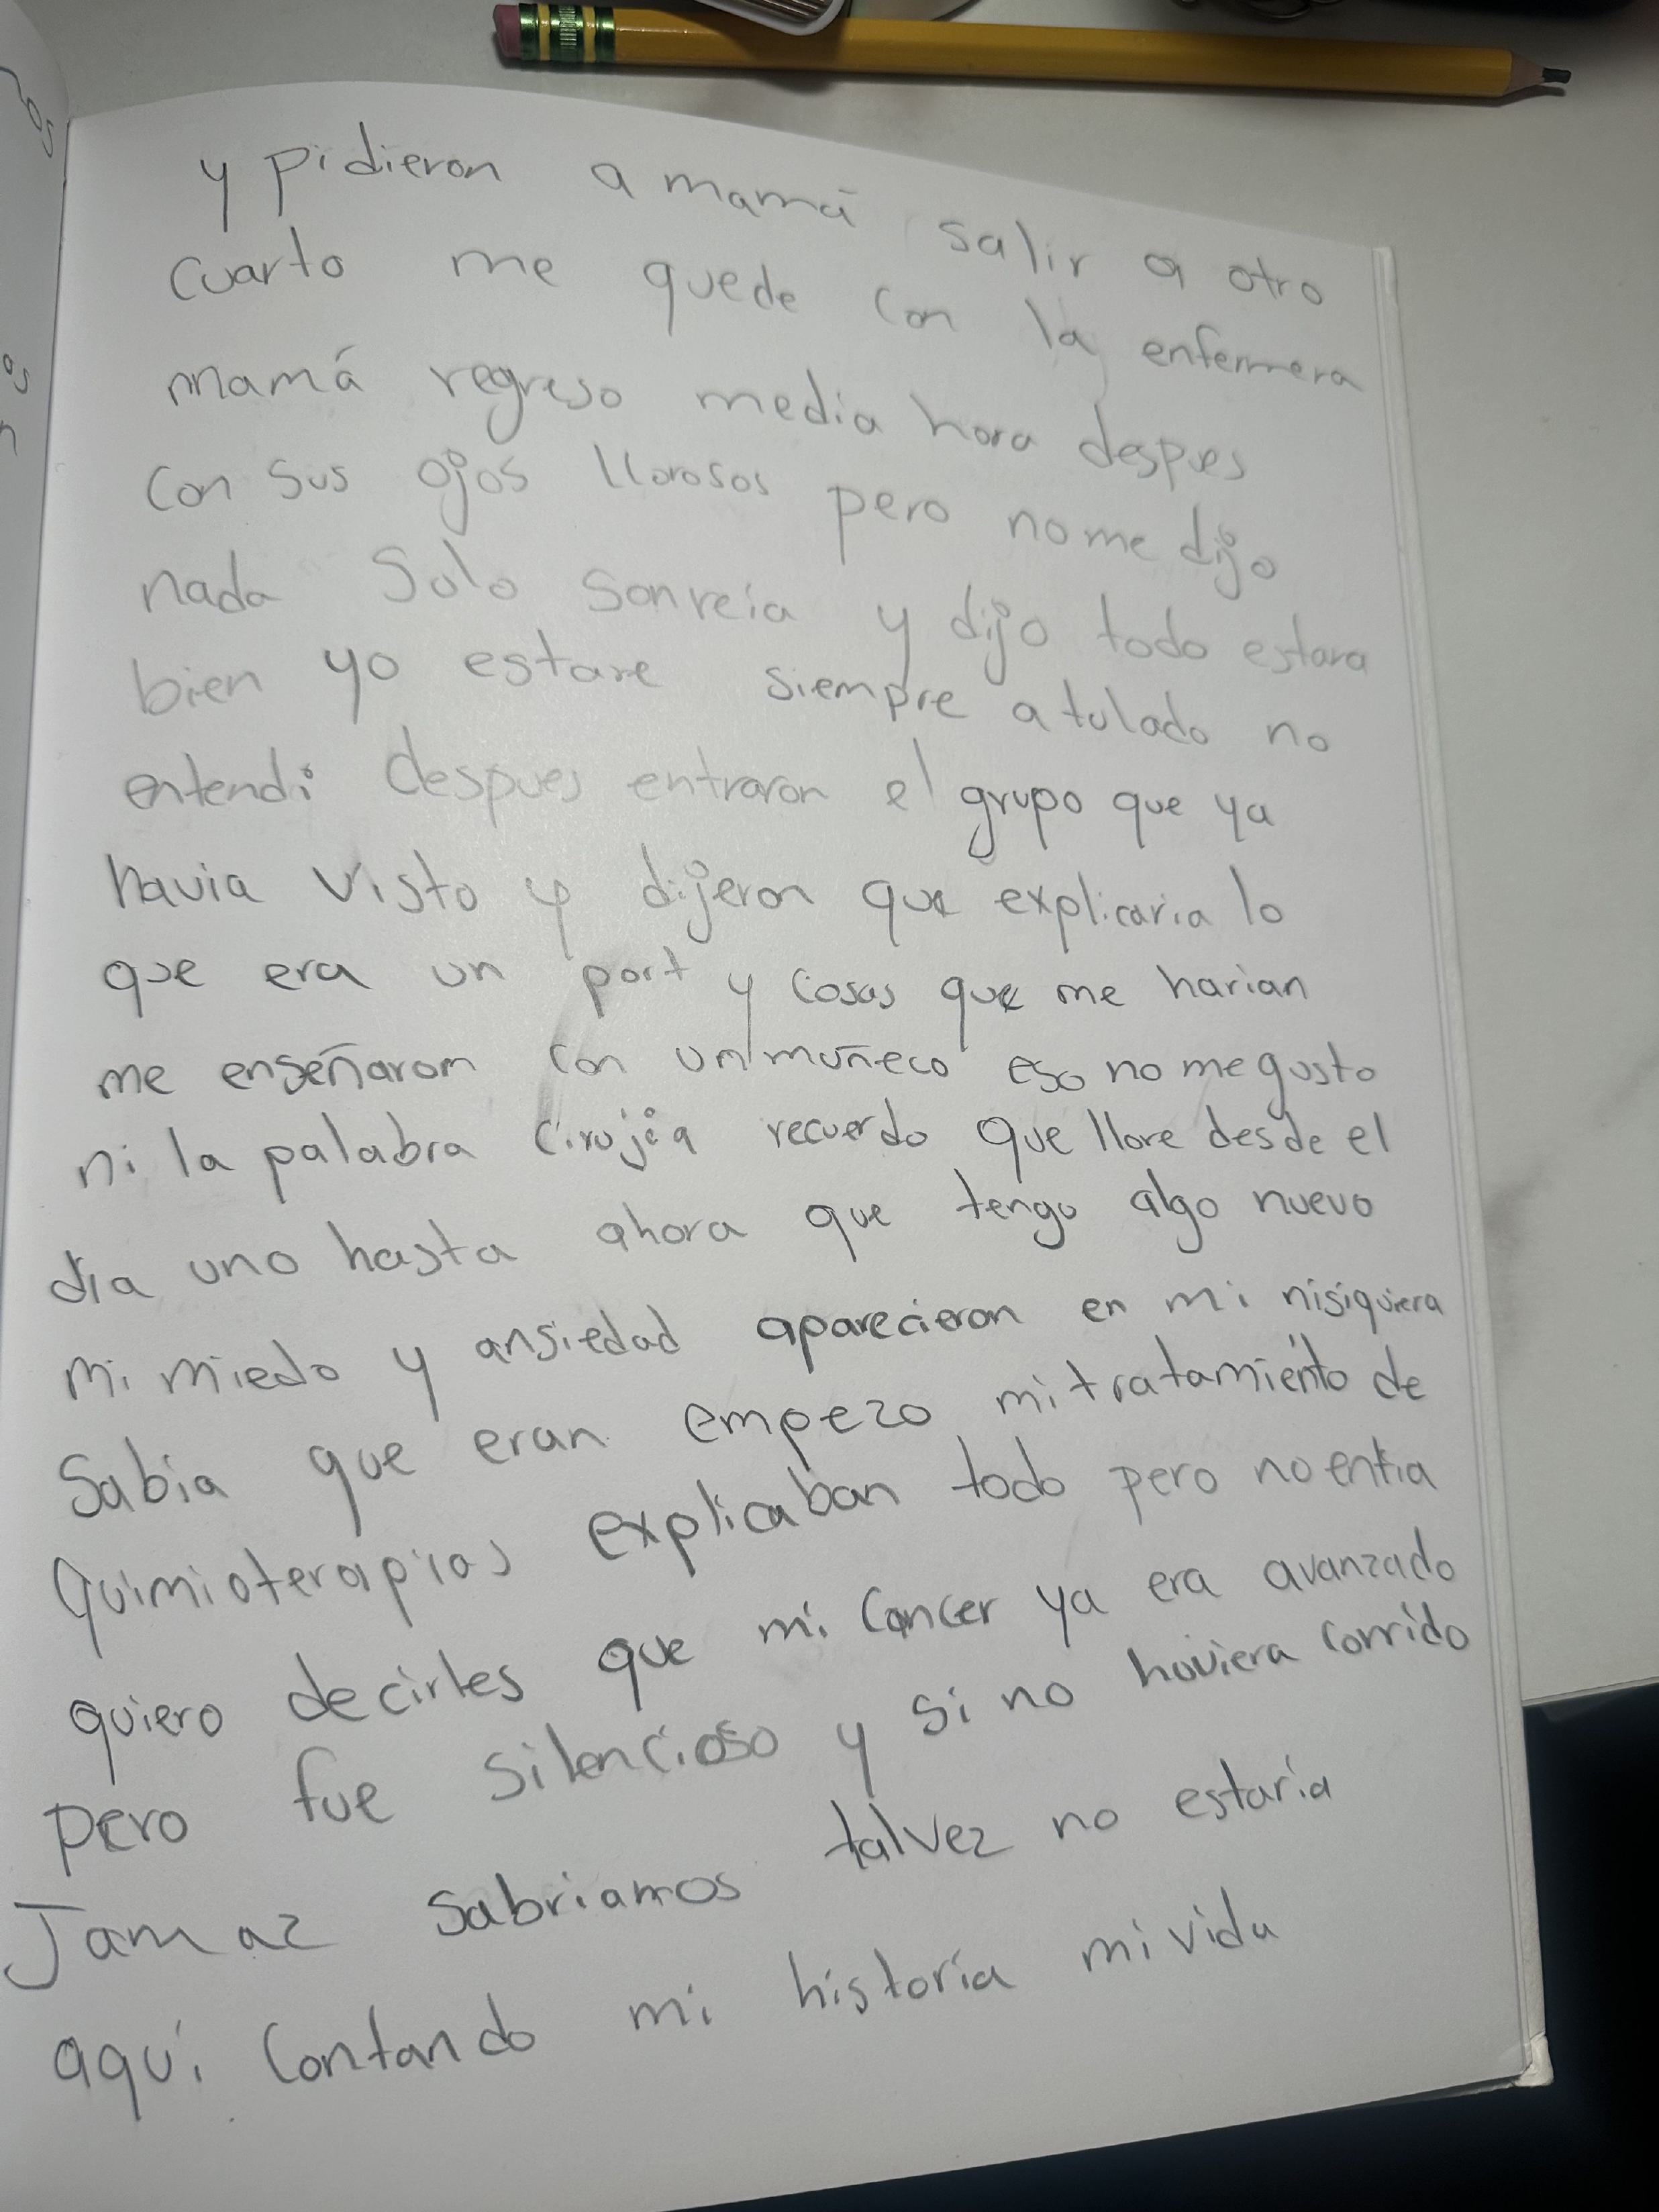 y pidieron a mamá salir a otro
cuarto me quede con la enfermera
mamá regreso media hora despues
con sus ojos llorosos pero no me dijo
nada Solo sonreia y dijo todo estara
bien yo estare siempre a tulado no
entendi despues entraron el grupo que ya
havia visto y dijeron que explicaria lo
que era un port y cosas que me harian
me enseñarom con un muñeco eso no me gusto
ni la palabra Cirujia recuerdo que llore desde el
dia uno hasta ahora que tengo algo nuevo
mi miedo y ansiedad aparecieron en mi nisiquiera
Sabia que eran empezo mi tratamiento de
Quimioterapias explicaban todo pero no entia
quiero decirles que mi Cancer ya era avanzado
pero fue silencioso y si no hoviera corrido
Jamaz sabriamos talvez no estaria
aqui Contando mi historia mi vida